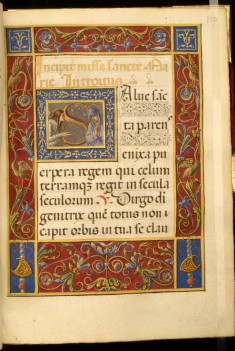 Incipit missa sancte Ma
rie. Introitus
Alue sāc
ta parens
enixa pu
erpera regem qui celum
terramqȝ regit in secula
seculorum. V. Virgo di
genitrix quē totus non
capit orbis in tua se clau